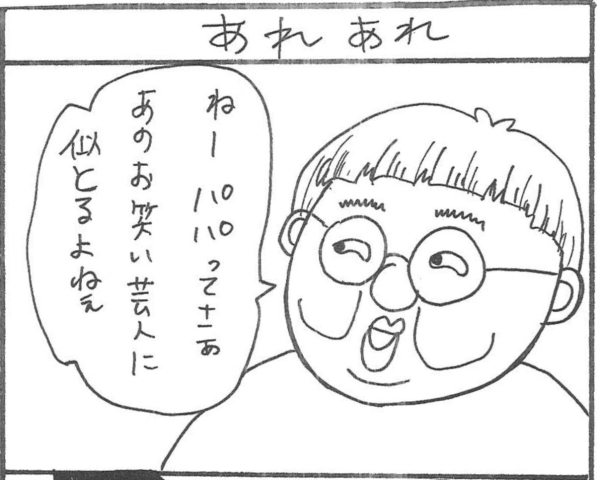 あれ あれ
ねー パパってさぁ
あのお笑い芸人に
似とるよねぇ